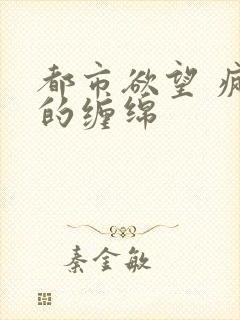 都市欲望
的缠绵
秦金敏